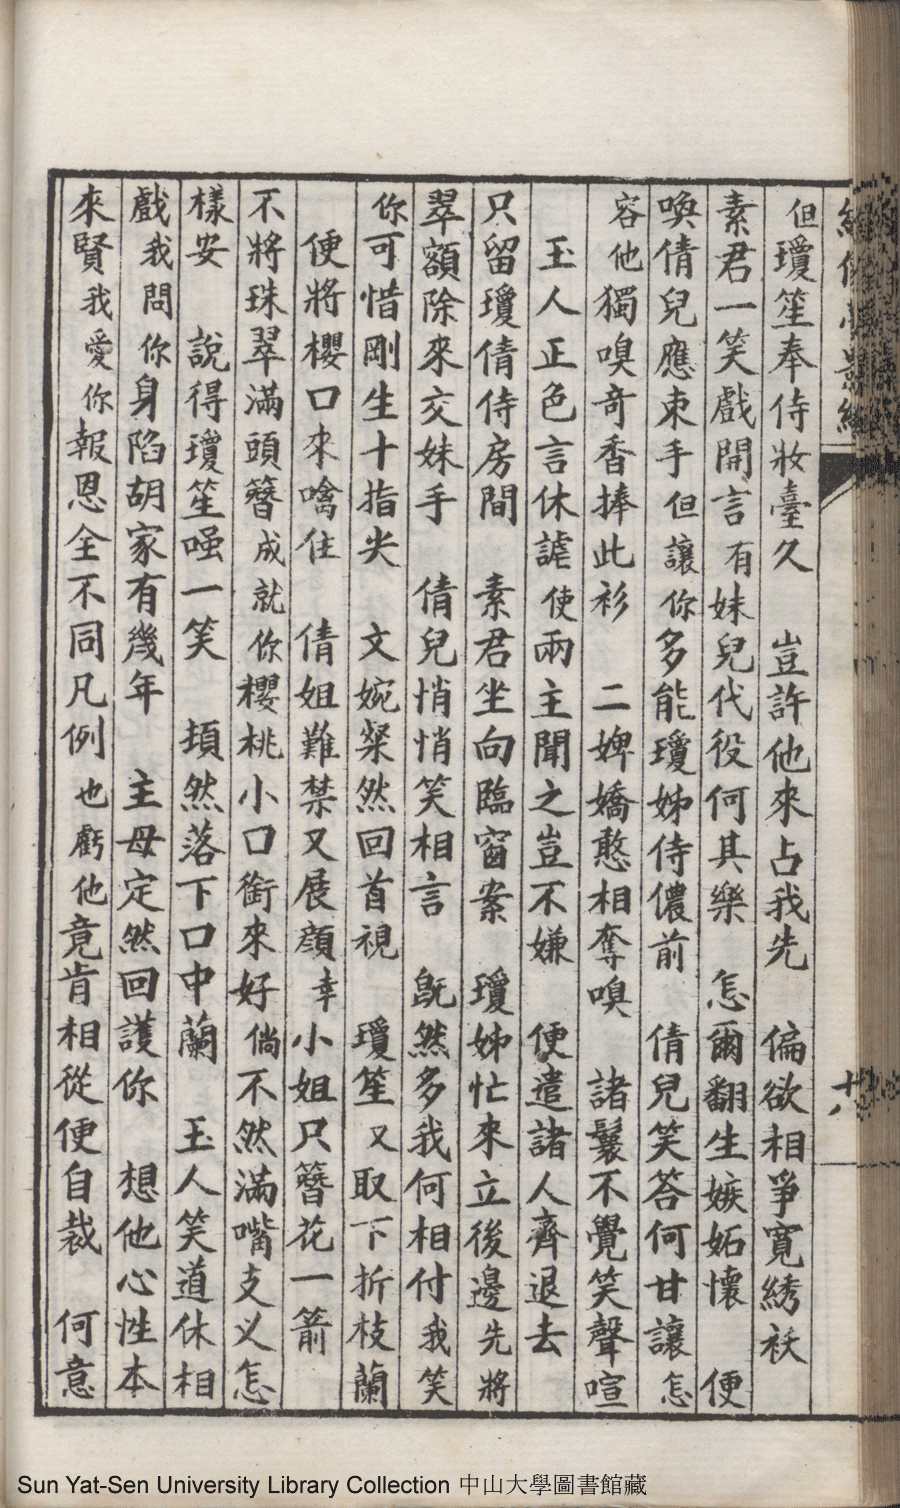 但瓊笙奉侍妝臺久　豈許他來占我先　偏欲相爭寬綉袄
素君一笑戲開言有妹兒代役何其樂　怎爾翻生嫉妬懷　便
喚倩兒應束手但讓你多能瓊姊侍儂前　倩兒笑答何甘讓怎
容他獨嗅奇香捧此衫　二婢嬌憨相奪嗅　諸鬟不覺笑聲喧
玉人正色言休謔使兩主聞之豈不嫌　便遣諸人齊退去
只留瓊倩侍房間　素君坐向臨窗案　瓊姊忙來立後邊先將
翠額除來交妹手　倩兒悄悄笑相言　旣然多我何相付我笑
你可惜剛生十指尖　文婉粲然回首視　瓊笙又取下折枝蘭
便將櫻口來噙住　倩姐難禁又展顔幸小姐只簪花一箭
不將珠翠滿頭簪成就你櫻桃小口銜來好倘不然滿嘴支义怎
樣安　說得瓊笙嗤一笑　頃然落下口中蘭　玉人笑道休相
戲我問你身陷胡家有幾年　主母定然回護你　想他心性本
來賢我愛你報恩全不同凡例也虧他竟肯相從便自裁　何意
十八
Sun Yat-Sen University Library Collection 中山大學圖書館藏